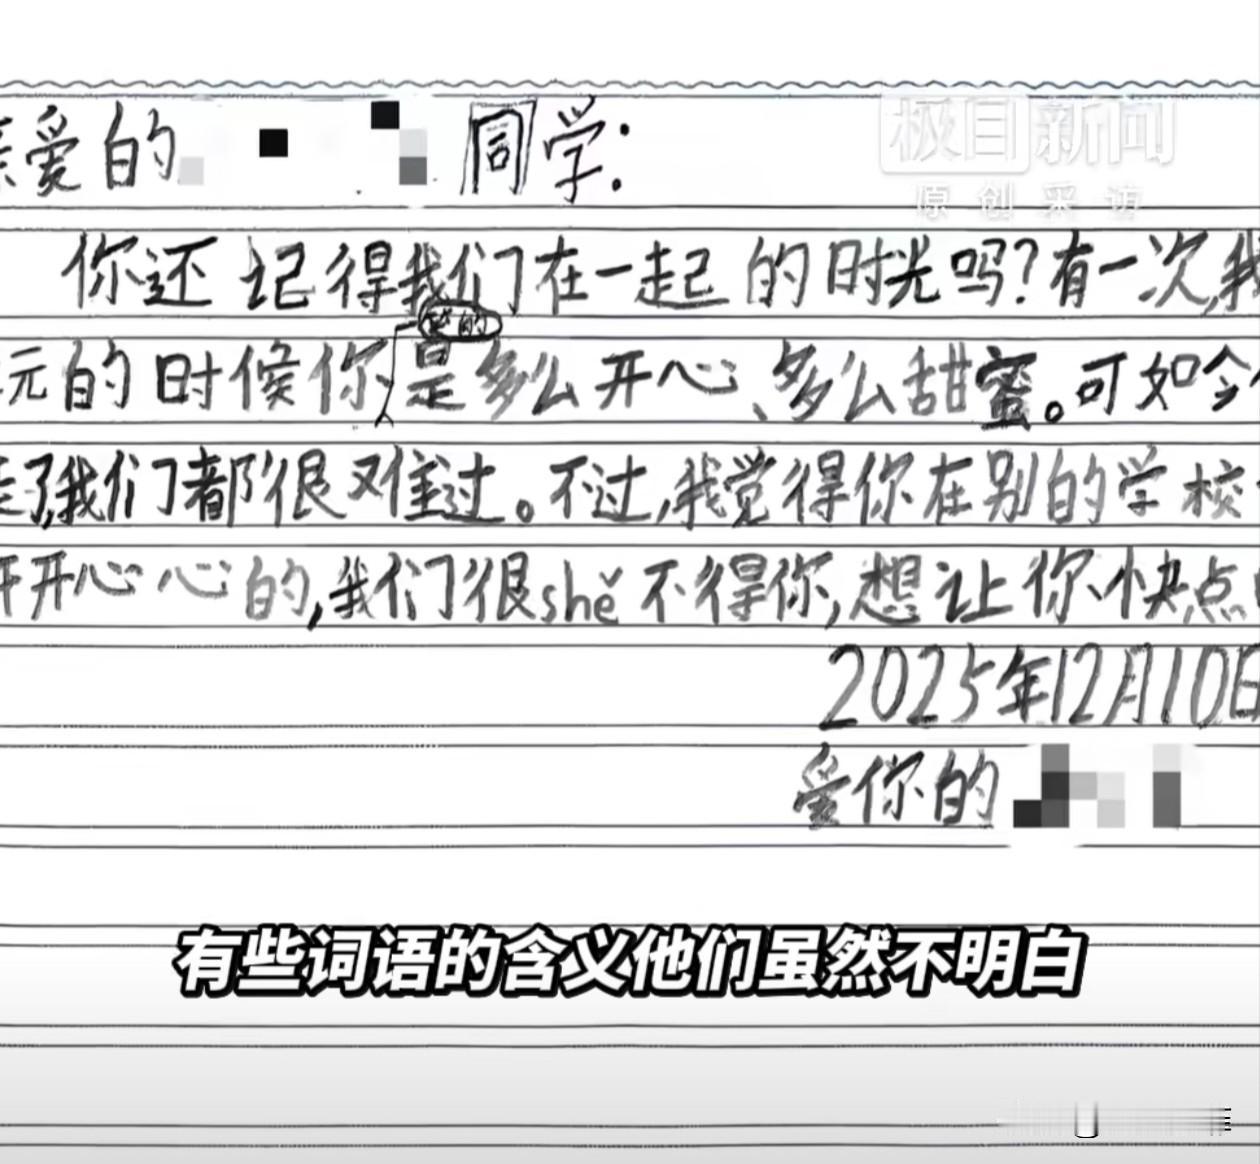 亲爱的 同学:
极目新闻
原创采访
你还记得我们在一起的时光吗?有一次,我
玩的时候你笑的是多么开心、多么甜蜜。可如今
走了,我们都很难过。不过,我觉得你在别的学校
开开心心的,我们很shě不得你,想让你快点
2025年12月10日
爱你的
有些词语的含义他们虽然不明白